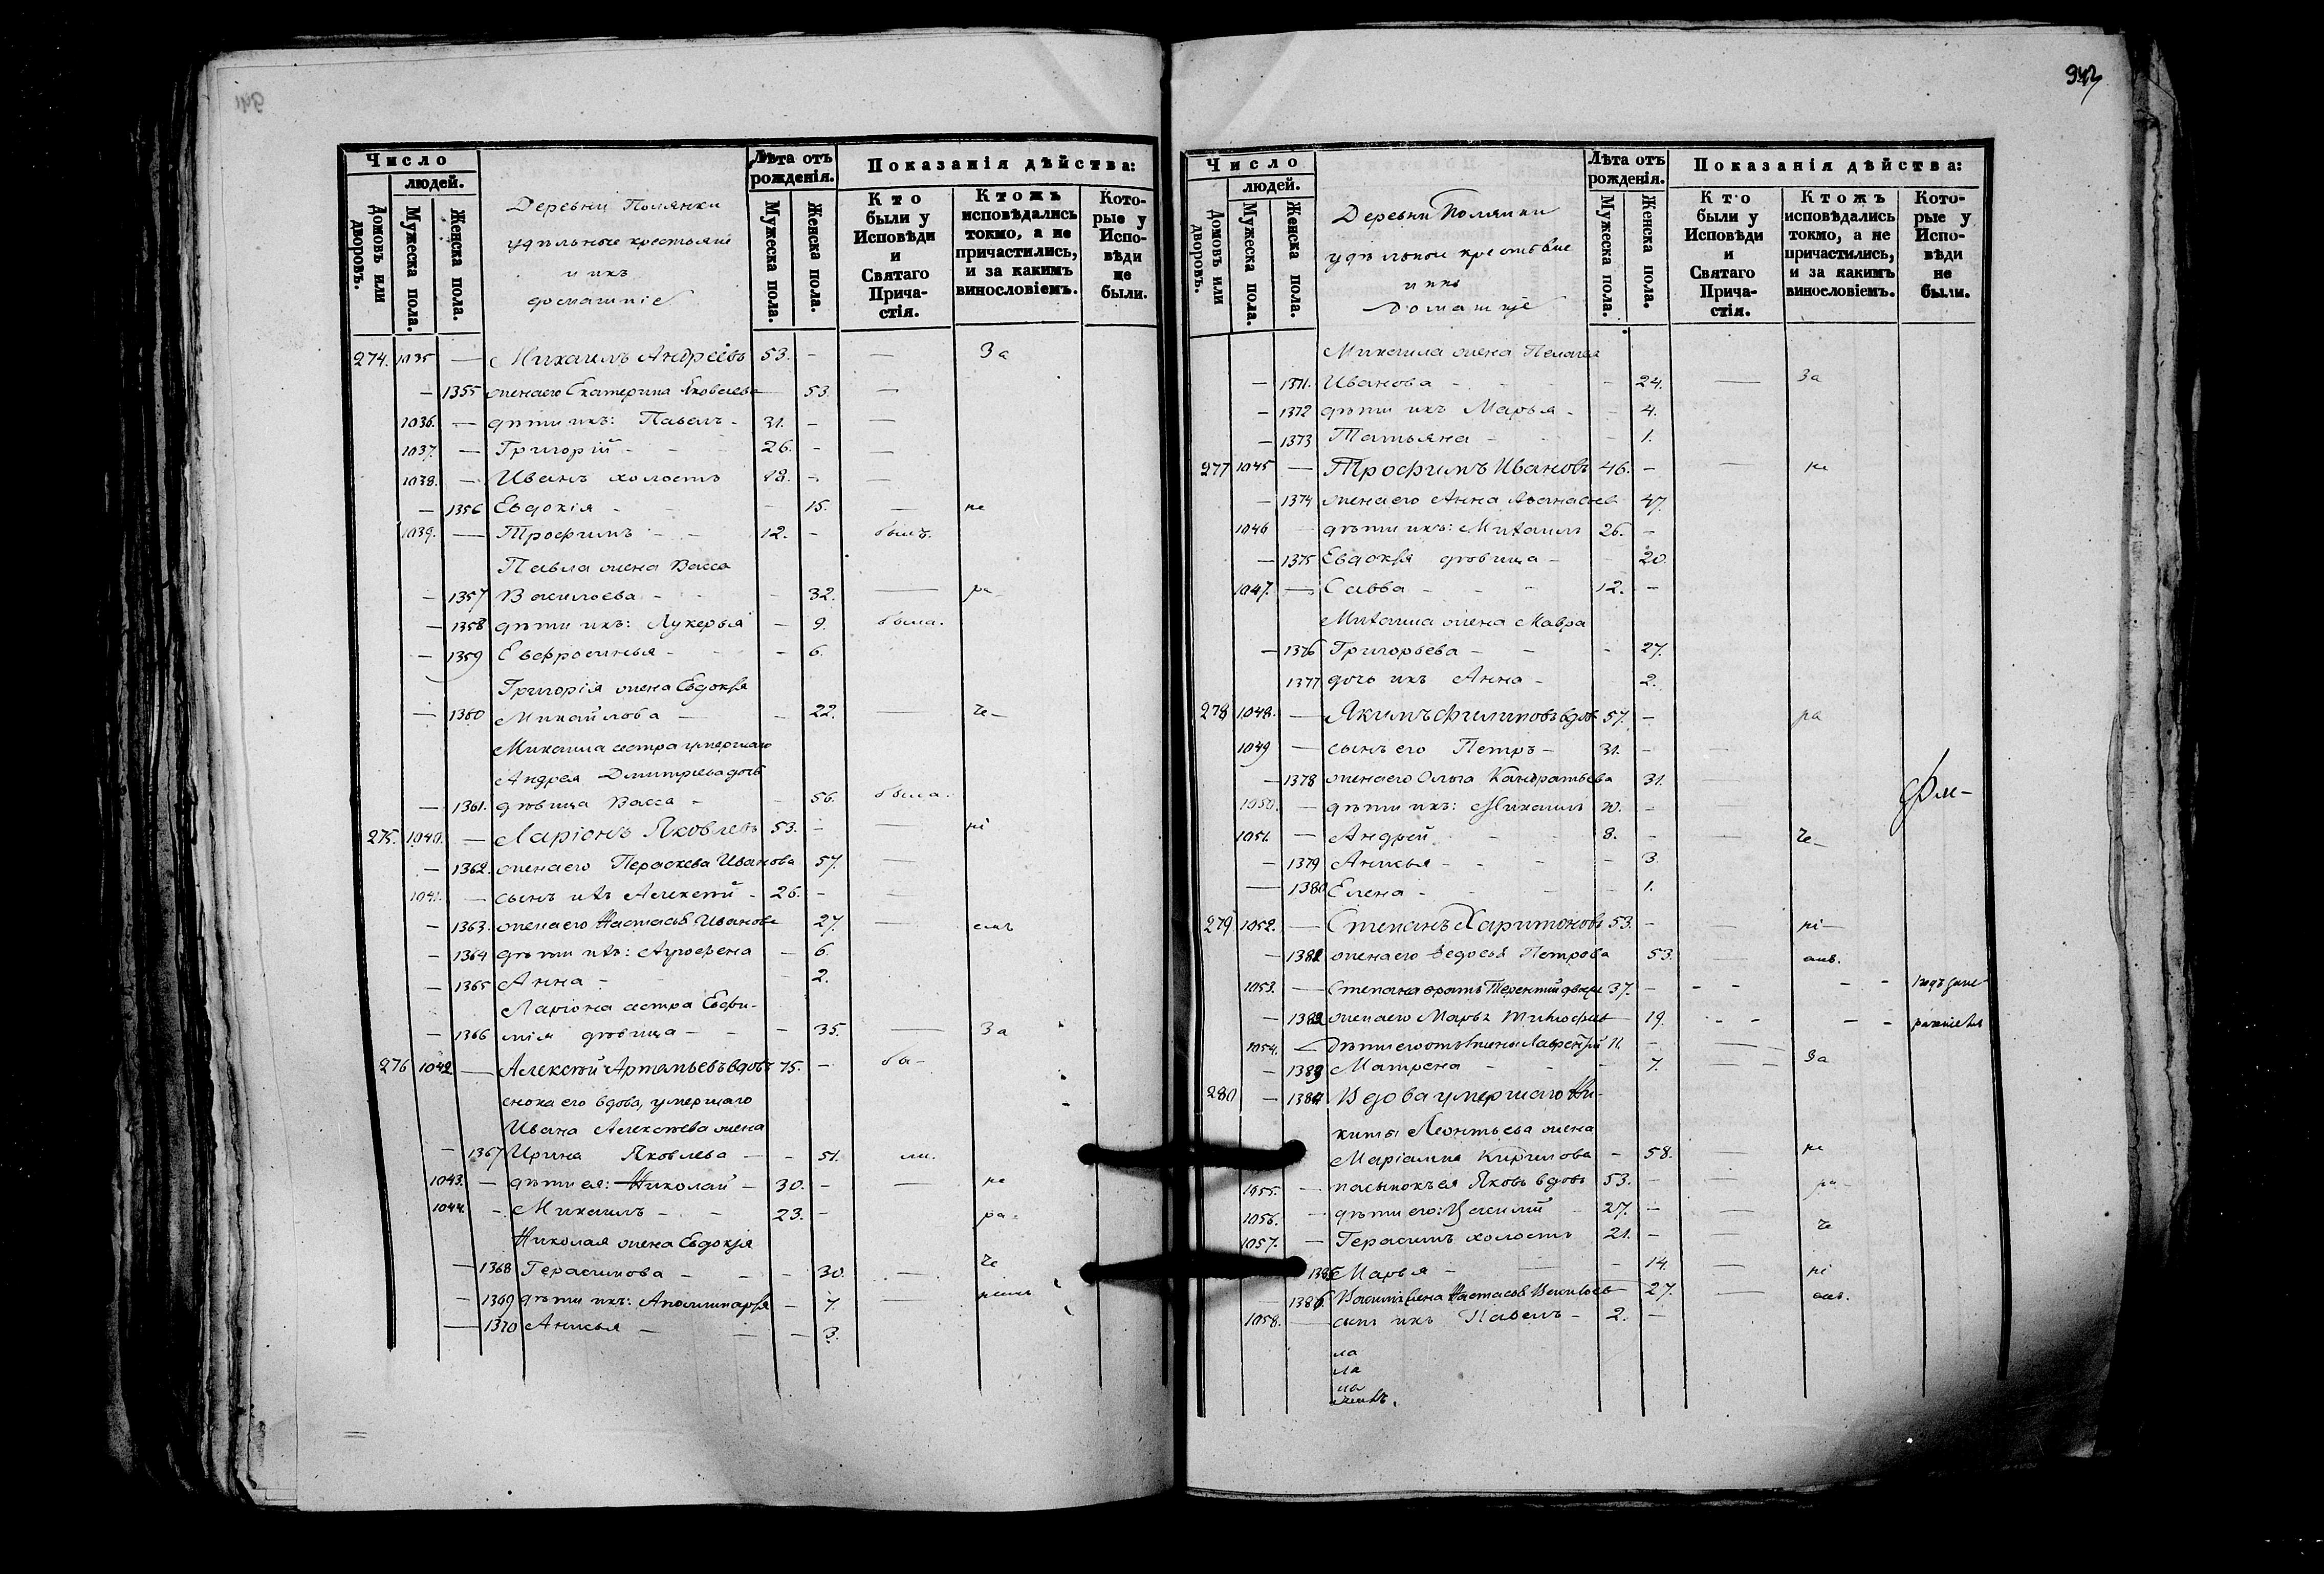 Число
людей.
Домовъ или дворовъ.
Мужеска пола.
Женска пола.
Деревни Полянки
удѣльные крестьяне
и ихъ
домашніе
Лѣта отъ рожденія.
Мужеска пола.
Женска пола.
Показанія дѣйства:
Кто были у Исповѣди и Святаго Причастія.
Ктожъ исповѣдались токмо, а не причастились, и за какимъ винословіемъ.
Которые у Исповѣди не были.
274. 1035 — Михаилъ Андреевъ 53. - — За
— 1355 жена его Екатерина Яковлева 53. —
1036. — дѣти ихъ: Павелъ - 31. - —
1037. — Григорій - 26. - —
1038. — Иванъ холостъ 18. - —
— 1356 Евдокія - 15. — не
1039. — Трофимъ - 12. - былъ.
Павла жена Васса
— 1357 Васильева - 32. — ра-
— 1358 дѣти ихъ: Лукерья - 9. была.
— 1359 Евфросинья - 6.
Григорія жена Евдокія
— 1360 Михайлова — 22. — че-
Михаила сестра умершаго
Андрея Дмитріева дочь
— 1361. дѣвица Васса - 56. была.
275. 1040. — Ларіонъ Яковлевъ 53. - — ні
— 1362. жена его Параскева Иванова 57. —
1041. — сынъ ихъ Алексѣй - 26. - —
— 1363. жена его Настасья Иванова 27. —
— 1364 дѣти ихъ: Агрофена — 6.
— 1365 Анна - 2.
Ларіона сестра Евфи-
— 1366 мія дѣвица - 35. — За
276 1042 — Алексѣй Артемьевъ вдовъ 75. - бы-
сноха его вдова, умершаго
Ивана Алексѣева жена
— 1367 Ирина Яковлева - 51. ли.
1043. — дѣти ея: Николай - 30. - — не
1044. - Михаилъ - 23. - ра-
Николая жена Евдокія
— 1368 Герасимова - 30. — че
— 1369 дѣти ихъ: Аполлинарія - 7. —
— 1370 Анисья - 3.
942
Число
людей.
Домовъ или дворовъ.
Мужеска пола.
Женска пола.
Деревни Полянки
удѣльные крестьяне
и ихъ
домашніе
Лѣта отъ рожденія.
Мужеска пола.
Женска пола.
Показанія дѣйства:
Кто были у Исповѣди и Святаго Причастія.
Ктожъ исповѣдались токмо, а не причастились, и за какимъ винословіемъ.
Которые у Исповѣди не были.
Михаила жена Пелагея
— 1371. Иванова - 24. — За
— 1372 дѣти ихъ Марья - 4.
— 1373 Татьяна - 1.
277 1045 — Трофимъ Ивановъ 46. - — не
— 1374 жена его Анна Аѳанасьева 47.
1046 дѣти ихъ: Михаилъ 26. -
— 1375 Евдокія дѣвица - 20.
1047. — Савва - 12. -
Михаила жена Мавра
— 1376 Григорьева - 27.
1377 дочь ихъ Анна - 2.
278 1048. — Якимъ Филиповъ вдовъ 57. - ра
1049 — сынъ его Петръ - 31. -
— 1378 жена его Ольга Кандратьева 31. —
1050. — дѣти ихъ: Михаилъ 10. - —
1051. — Андрей 8. - — че-
— 1379 Анисья - 3.
— 1380 Елена - 1.
279 1052. — Степанъ Харитоновъ 53. - — ні-
— 1381 жена его Ѳедосья Петрова 53. —
1053. — Степана братъ Терентій 37. -
— 1382 жена его Марья 19.
1054. — Лаврентій 11. - —
— 1383 Матрена - 7. — За
280 — 1384 Вдова умершаго Ни-
киты Леонтьева жена
Маріамна Кирилова - 58. — не
1055. — пасынокъ ея Яковъ вдовъ 53. - — ра-
1056. - дѣти его: Василій 27. - —
1057. — Герасимъ холостъ 21. - — че
1385 Марья - 14. — ні
1386. Василья жена Настасья 27. —
1058. — сынъ ихъ Павелъ - 2. —